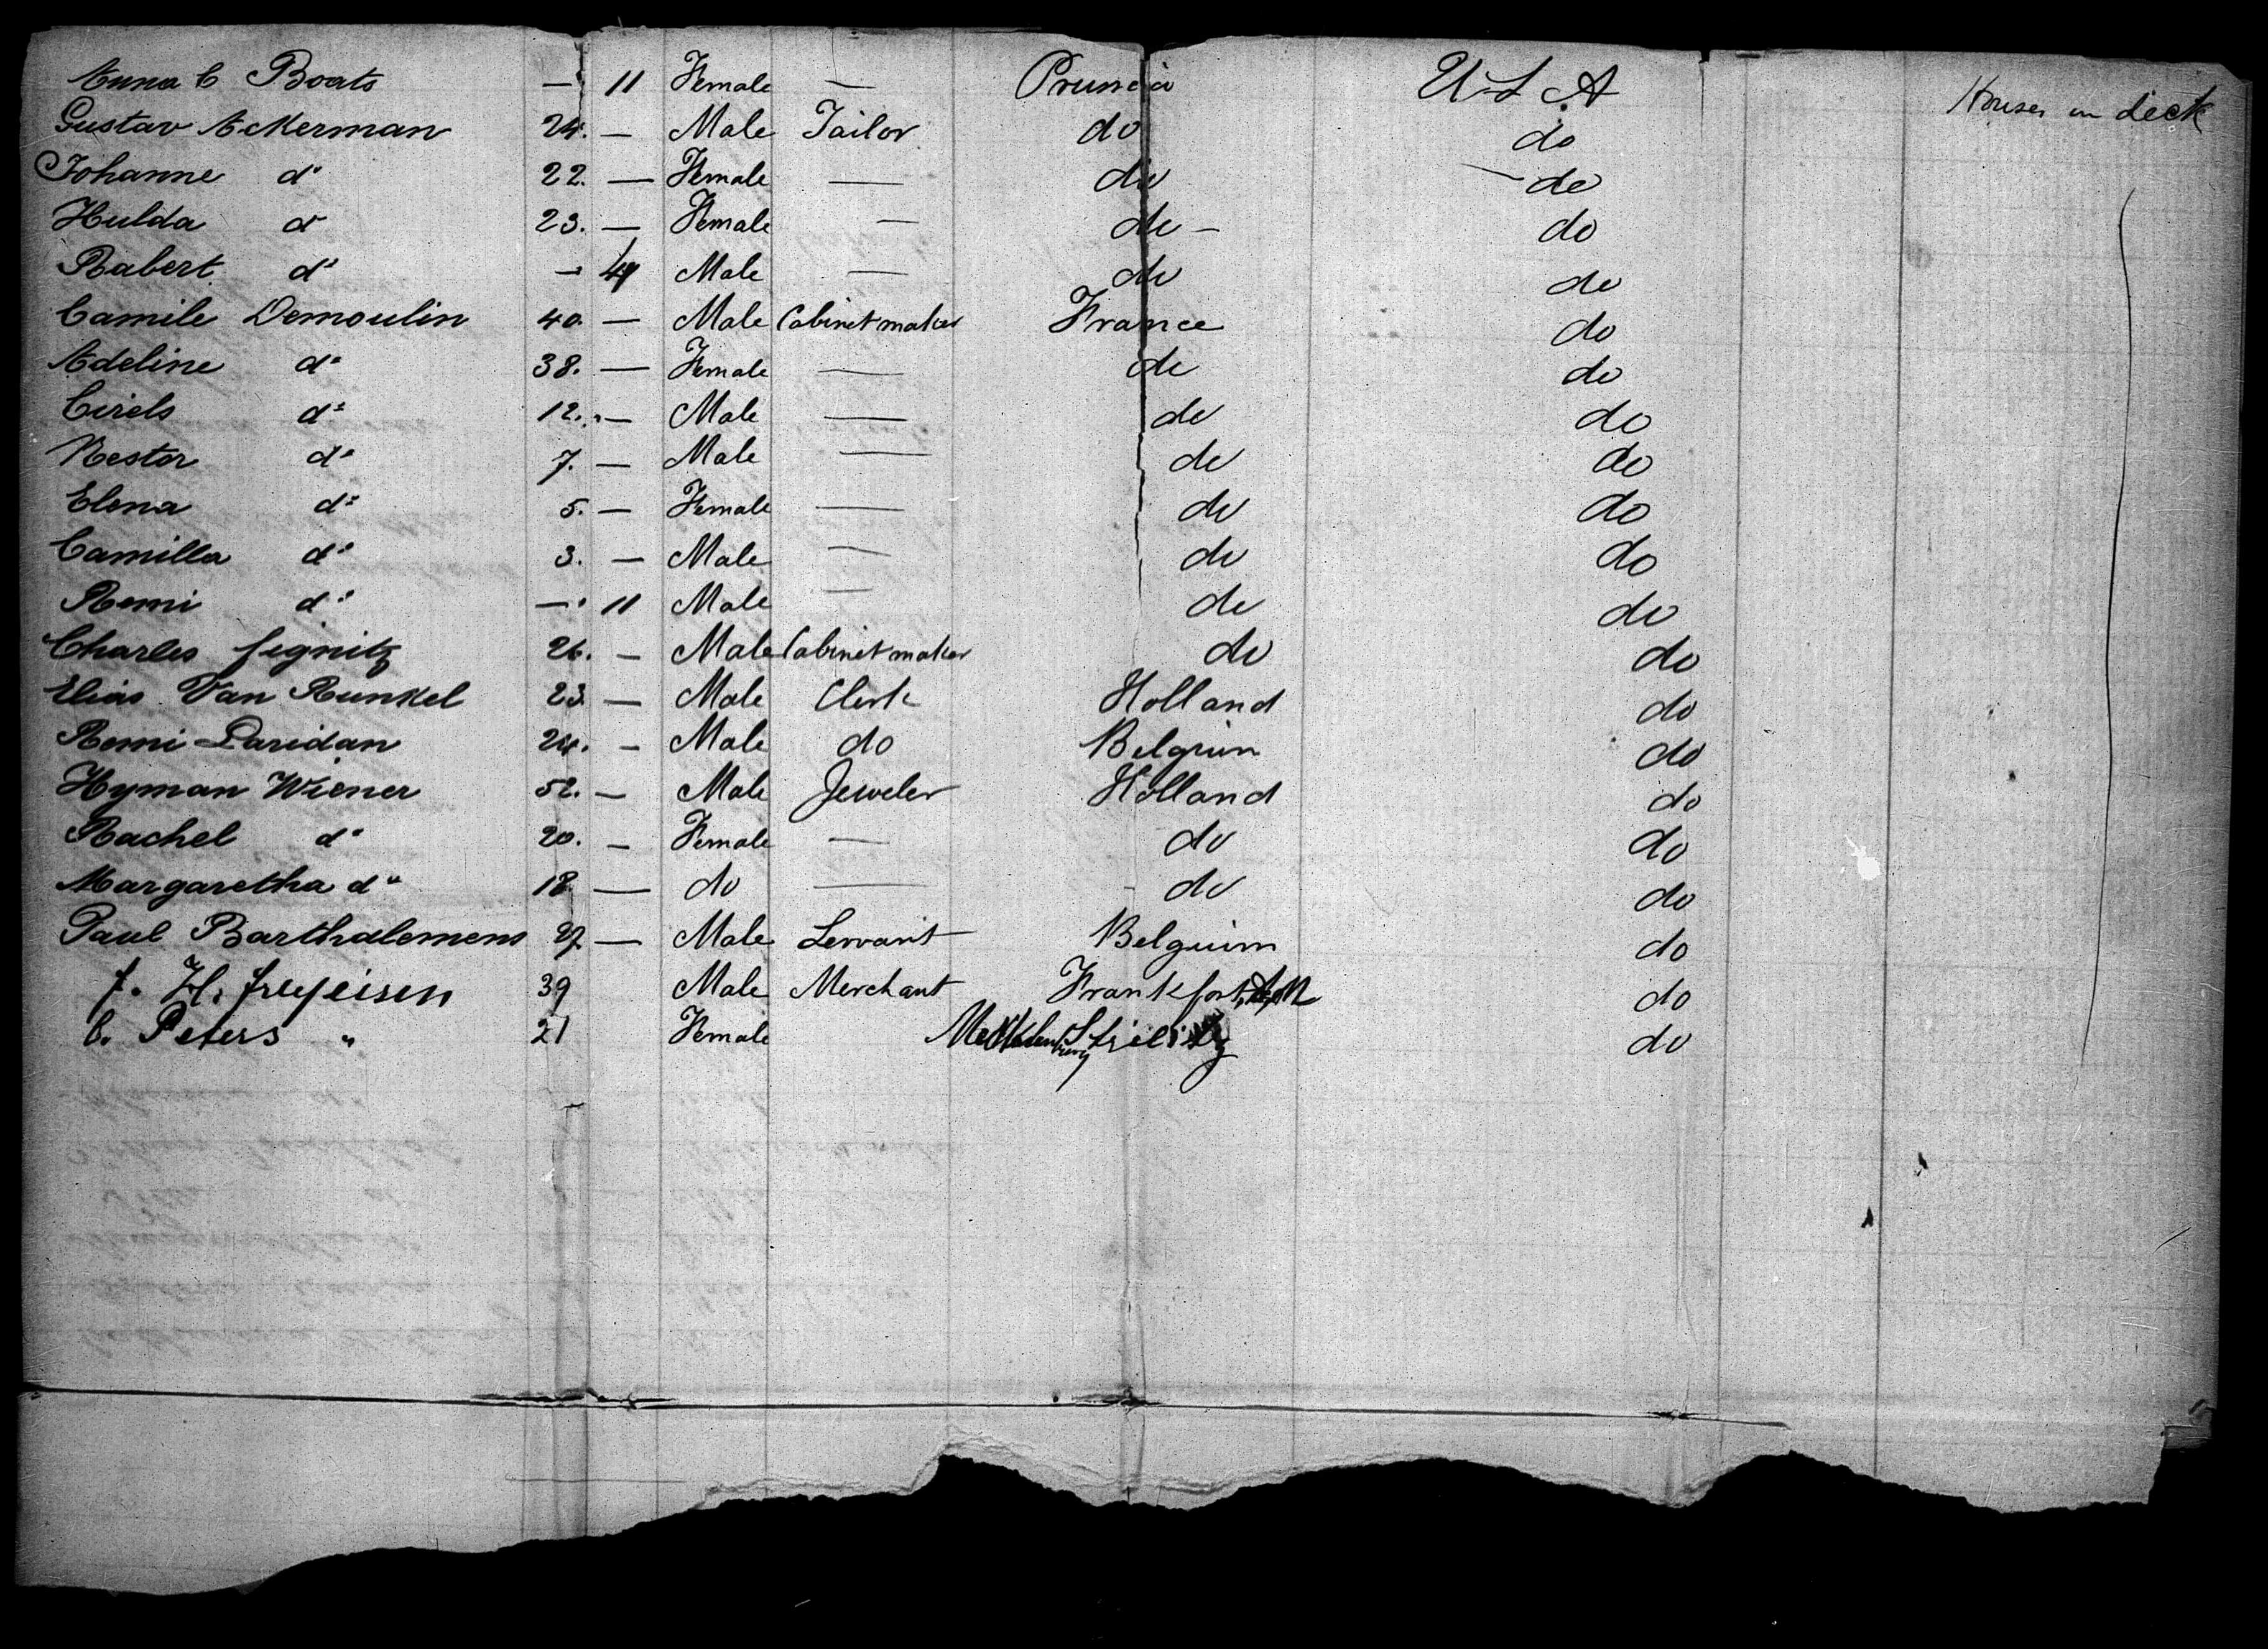 Anna C Boats — 11 Female — Prussia U S A Houses on deck
Gustav Ackerman 24. — Male Tailor do do
Johanne do 22. — Female — do do
Hulda do 23. — Female — do — do
Rabert do — 4 Male — do do
Camile Demoulin 40. — Male Cabinet maker France do
Adeline do 38. — Female — do do
Cirels do 12. — Male — do do
Nestor do 7. — Male — do do
Elena do 5. — Female — do do
Camilla do 3. — Male — do do
Remi do — 11 Male — do do
Charles Lignitz 26. — Male Cabinet maker do do
Elias Van Runkel 23 — Male Clerk Holland do
Remi Paridan 24. — Male do Belgium do
Hyman Wiener 52. — Male Jeweler Holland do
Rachel do 20. — Female — do do
Margaretha do 18 — do — do do
Paul Barthalemens 27 — Male Servant Belguim do
J. H. 39 Male Merchant Frankfort do
C. Peters " 21 Female Mecklenburg Strelitz do